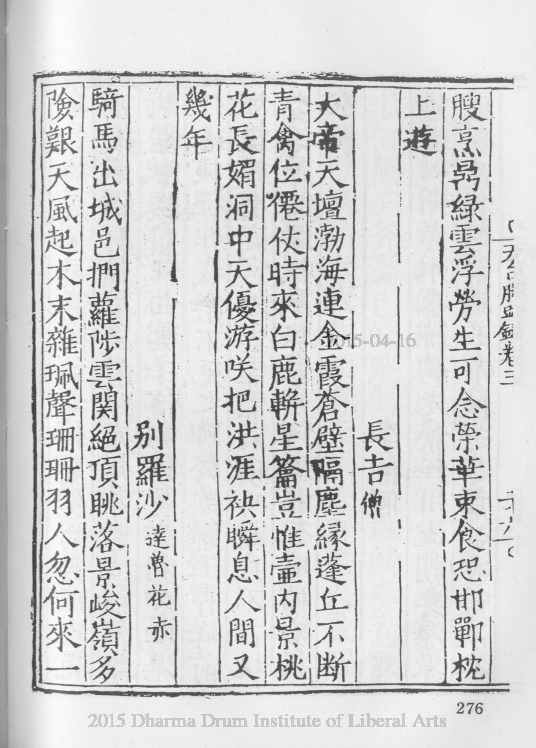 天台勝蹟錄卷三
膄烹昺綠雲浮勞生可念榮華東食恐邯鄲枕
上遊
長吉僧
大帝天壇渤海連金霞蒼壁隔塵緣蓬丘不断
青禽位僊仗時來白鹿軿星籥豈惟壺内景桃
花長媚洞中天優游咲把洪涯袂瞬息人間又
幾年
别羅沙達魯花赤
騎馬出城邑捫蘿陟雲関絕頂眺落景峻嶺多
險艱天風起木末雜珮聲珊珊羽人忽何來一
276
2015-04-16
2015 Dharma Drum Institute of Liberal Arts